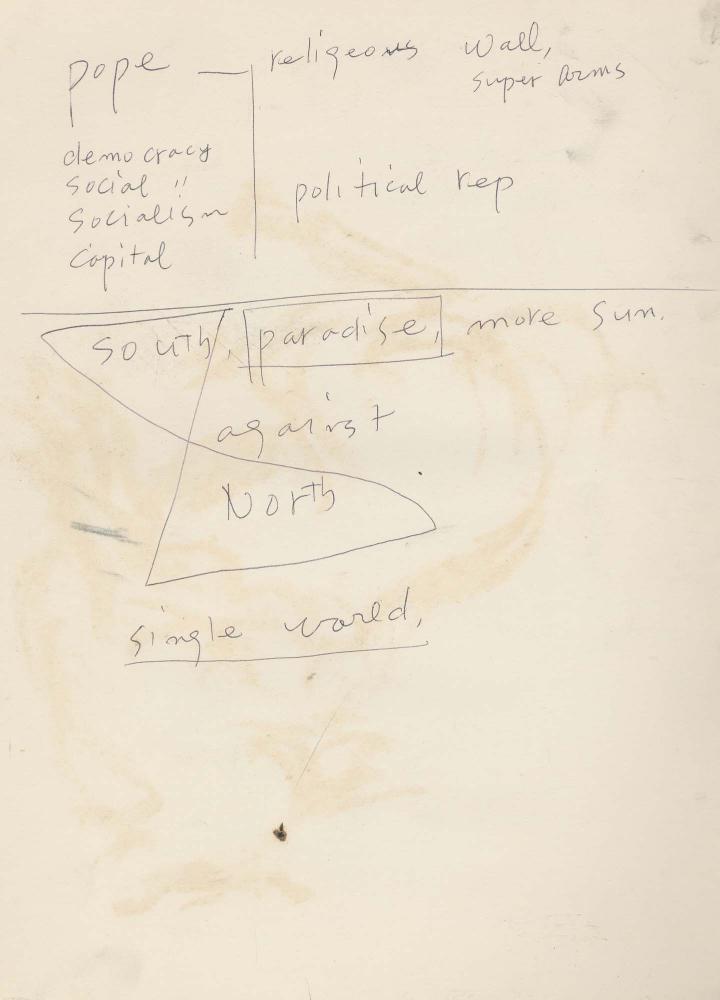 pope — religeous wall,
super arms
democracy
social "
socialism
capital
political rep
south, paradise, more sun.
against
North
single world,